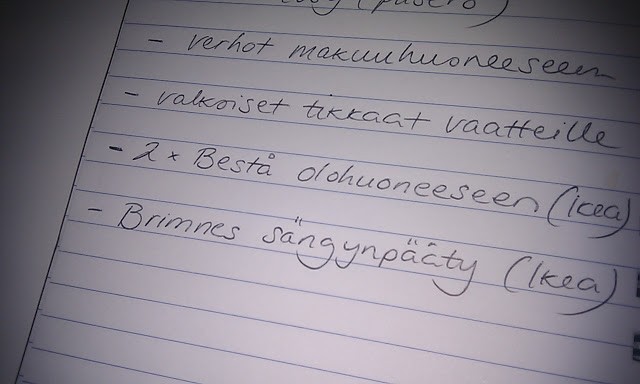 (pusero)
- verhot makuuhuoneeseen
- valkoiset tikkaat vaatteille
- 2 x Bestå olohuoneeseen (ikea)
- Brimnes sängynpääty (Ikea)